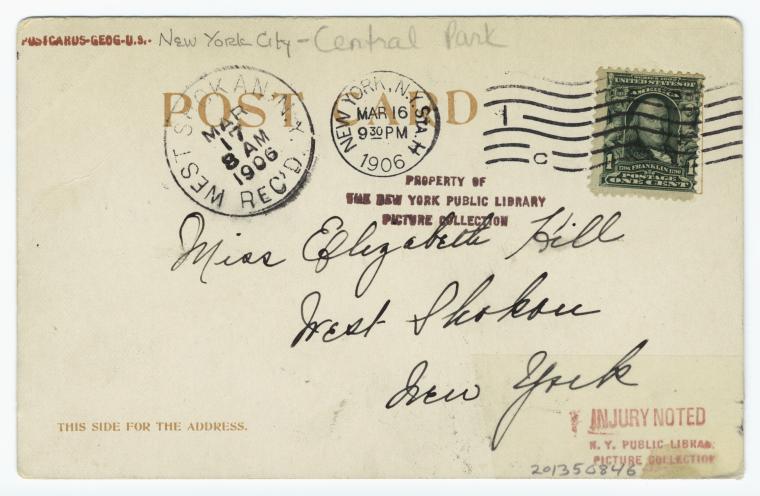 POSTCARDS-GEOG-U.S.- New York City - Central Park
POST CARD
WEST SHOKAN, N.Y.
MAR
17
8 AM
1906
REC'D.
NEW YORK, N.Y. STA. H
MAR 16
9 30 PM
1906
1
C
SERIES 1902
UNITED STATES OF
AMERICA
1 1706 FRANKLIN 1790 1
POSTAGE
ONE CENT
PROPERTY OF
THE NEW YORK PUBLIC LIBRARY
PICTURE COLLECTION
Miss Elizabeth Hill
West Shokan
New York
THIS SIDE FOR THE ADDRESS.
INJURY NOTED
N. Y. PUBLIC LIBRA
PICTURE COLLECTION
201350846